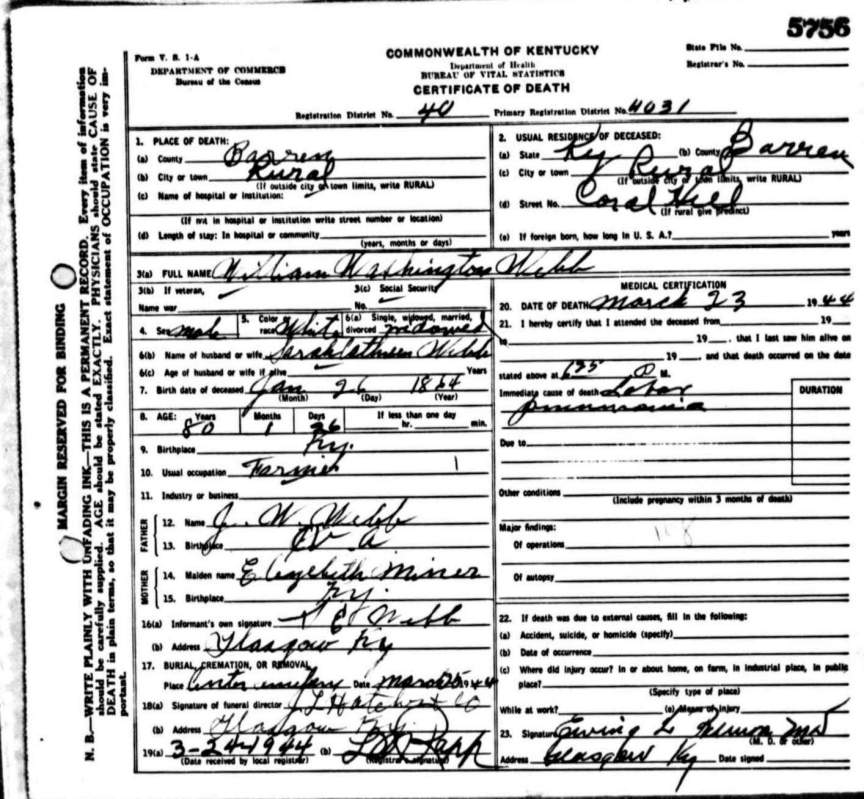 5756
Form V. S. 1-A
DEPARTMENT OF COMMERCE
Bureau of the Census
COMMONWEALTH OF KENTUCKY
Department of Health
BUREAU OF VITAL STATISTICS
CERTIFICATE OF DEATH
State File No.
Registrar's No.
Registration District No. 40 Primary Registration District No. 4031
MARGIN RESERVED FOR BINDING
N. B.—WRITE PLAINLY WITH UNFADING INK—THIS IS A PERMANENT RECORD. Every item of information
should be carefully supplied. AGE should be stated EXACTLY. PHYSICIANS should state CAUSE OF
DEATH in plain terms, so that it may be properly classified. Exact statement of OCCUPATION is very im-
portant.
1. PLACE OF DEATH:
(a) County Barren
(b) City or town Rural
(If outside city or town limits, write RURAL)
(c) Name of hospital or institution:
(If not in hospital or institution write street number or location)
(d) Length of stay: In hospital or community
(years, months or days)
2. USUAL RESIDENCE OF DECEASED:
(a) State Ky (b) County Barren
(c) City or town Rural
(If outside city or town limits, write RURAL)
(d) Street No. Coral Hill
(If rural give precinct)
(e) If foreign born, how long in U. S. A.? years
3(a) FULL NAME William Washington Webb
3(b) If veteran,
Name war
3(c) Social Security
No.
4. Sex male 5. Color race White 6(a) Single, widowed, married, divorced widowed
6(b) Name of husband or wife Webb
6(c) Age of husband or wife if alive Years
7. Birth date of deceased Jan 26 1864
(Month) (Day) (Year)
8. AGE: Years Months Days If less than one day
80 1 26 hr. min.
9. Birthplace Ky.
10. Usual occupation Farmer
11. Industry or business
FATHER
12. Name J. W. Webb
13. Birthplace Va
MOTHER
14. Maiden name Elizebeth Miner
15. Birthplace Ky.
16(a) Informant's own signature E Webb
(b) Address Glasgow Ky
17. BURIAL, CREMATION, OR REMOVAL
Place cemetery Date March 25 1944
18(a) Signature of funeral director
(b) Address Glasgow Ky.
19(a) 3-24-1944 (b)
(Date received by local registrar) (Registrar's signature)
MEDICAL CERTIFICATION
20. DATE OF DEATH March 23 1944
21. I hereby certify that I attended the deceased from 19
to 19 , that I last saw him alive on
19 and that death occurred on the date
stated above at P M.
Immediate cause of death Lobar
pneumonia
DURATION
Due to
Other conditions
(Include pregnancy within 3 months of death)
Major findings:
Of operations
Of autopsy
22. If death was due to external causes, fill in the following:
(a) Accident, suicide, or homicide (specify)
(b) Date of occurrence
(c) Where did injury occur? In or about home, on farm, in industrial place, in public
place?
(Specify type of place)
While at work? (e) Means of injury
23. Signature Ewing L MD
(M. D. or other)
Address Glasgow Ky Date signed